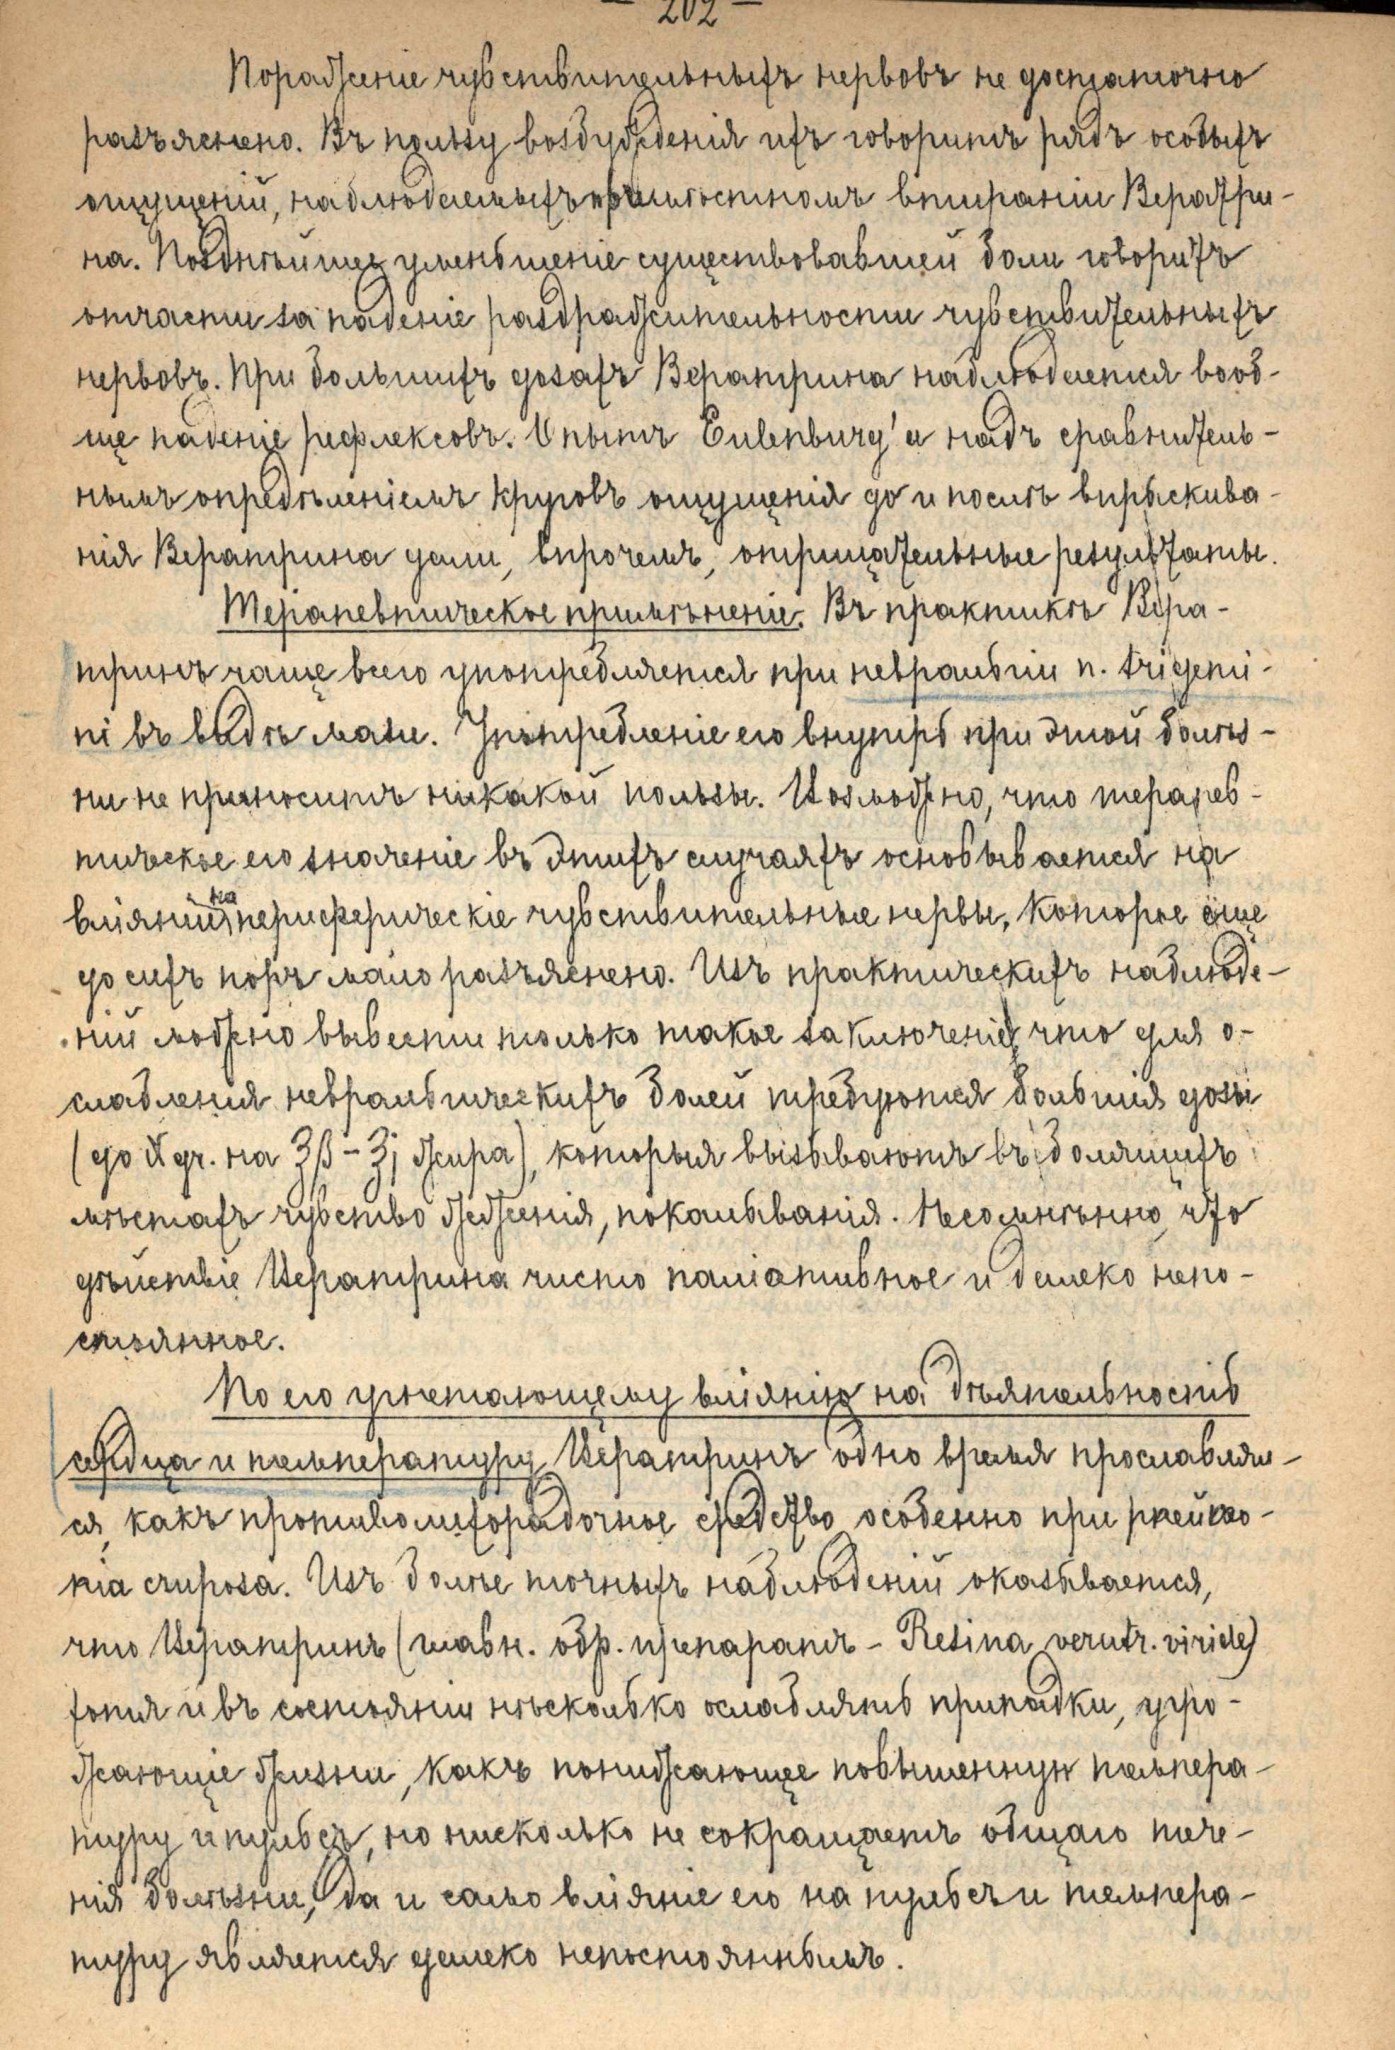 — 202 —
Пораженіе чувствительныхъ нервовъ не достаточно
разъяснено. Въ пользу возбужденія ихъ говоритъ рядъ особыхъ
ощущеній, наблюдаемыхъ при мѣстномъ втираніи Вератри-
на. Позднѣйшее уменьшеніе существовавшей боли говоритъ
отчасти за паденіе раздражительности чувствительныхъ
нервовъ. При большихъ дозахъ Вератрина наблюдается вооб-
ще паденіе рефлексовъ. Опытъ Eulenburg'а надъ сравнитель-
нымъ опредѣленіемъ круговъ ощущенія до и послѣ впрыскива-
нія Вератрина дали, впрочемъ, отрицательные результаты.
Терапевтическое примѣненіе. Въ практикѣ Вера-
тринъ чаще всего употребляется при невральгіи n. trigemi-
ni въ видѣ мази. Употребленіе его внутрь при этой болѣз-
ни не приноситъ никакой пользы. Возможно, что терапев-
тическое его значеніе въ этихъ случаяхъ основывается на
вліяніи на периферическіе чувствительные нервы, которое еще
до сихъ поръ мало разъяснено. Изъ практическихъ наблюде-
ній можно вывести только такое заключеніе, что для о-
слабленія невральгическихъ болей требуются большія дозы
(до X gr. на ʒβ – ʒj жира), которыя вызываютъ въ болящихъ
мѣстахъ чувство жженія, покалыванія. Несомнѣнно, что
дѣйствіе Вератрина чисто паліативное и далеко непо-
стоянное.
По его угнетающему вліянію на дѣятельность
сердца и температуру Вератринъ одно время прославлял-
ся, какъ противолихорадочное средство особенно при pneumo-
nia crуposa. Изъ болѣе точныхъ наблюденій оказывается,
что Вератринъ (главн. обр. препаратъ – Resina veratr. viride)
хотя и въ состояніи нѣсколько ослаблять припадки, угро-
жающіе жизни, какъ понижающее повышенную темпера-
туру и пульсъ, но нисколько не сокращаетъ общаго тече-
нія болѣзни, да и само вліяніе его на пульсъ и темпера-
туру является далеко непостояннымъ.